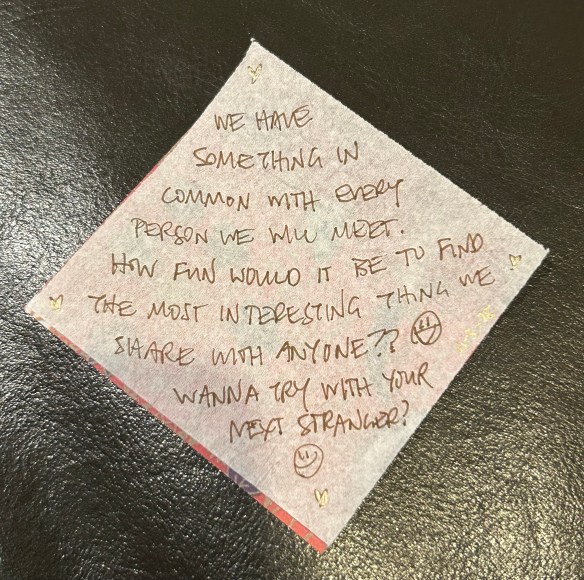 WE HAVE
SOMETHING IN
COMMON WITH EVERY
PERSON WE WILL MEET.
HOW FUN WOULD IT BE TO FIND
THE MOST INTERESTING THING WE
SHARE WITH ANYONE??
WANNA TRY WITH YOUR
NEXT STRANGER?